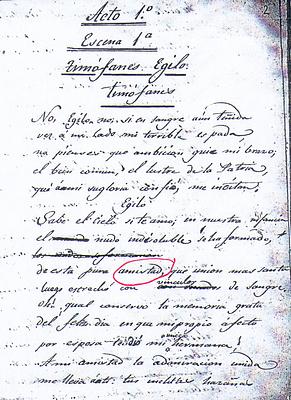 Acto 1.º
Escena 1ª
Timófanes. Egilo.
Timófanes
No, Egilo, no: si en sangre aún teñida
ves á mi lado mi terrible espada
no pienses que ambicion guie mi brazo;
el bien comun, el lustre de la Patria,
que á mi su gloria confió, me incitan,
Egilo
Sabe el cielo si te amo; en nuestra infancia
el nudo indisoluble se ha formado,
de esta pura amistad, que union mas santa
luego estrechó con vinculos de sangre,
oh! qual conservo la memoria grata
del feliz dia en que mi propio afecto
por esposa te dió mi hermana!
A mi amistad la admiracion unida
me lleva ante tus inclitas hazañas